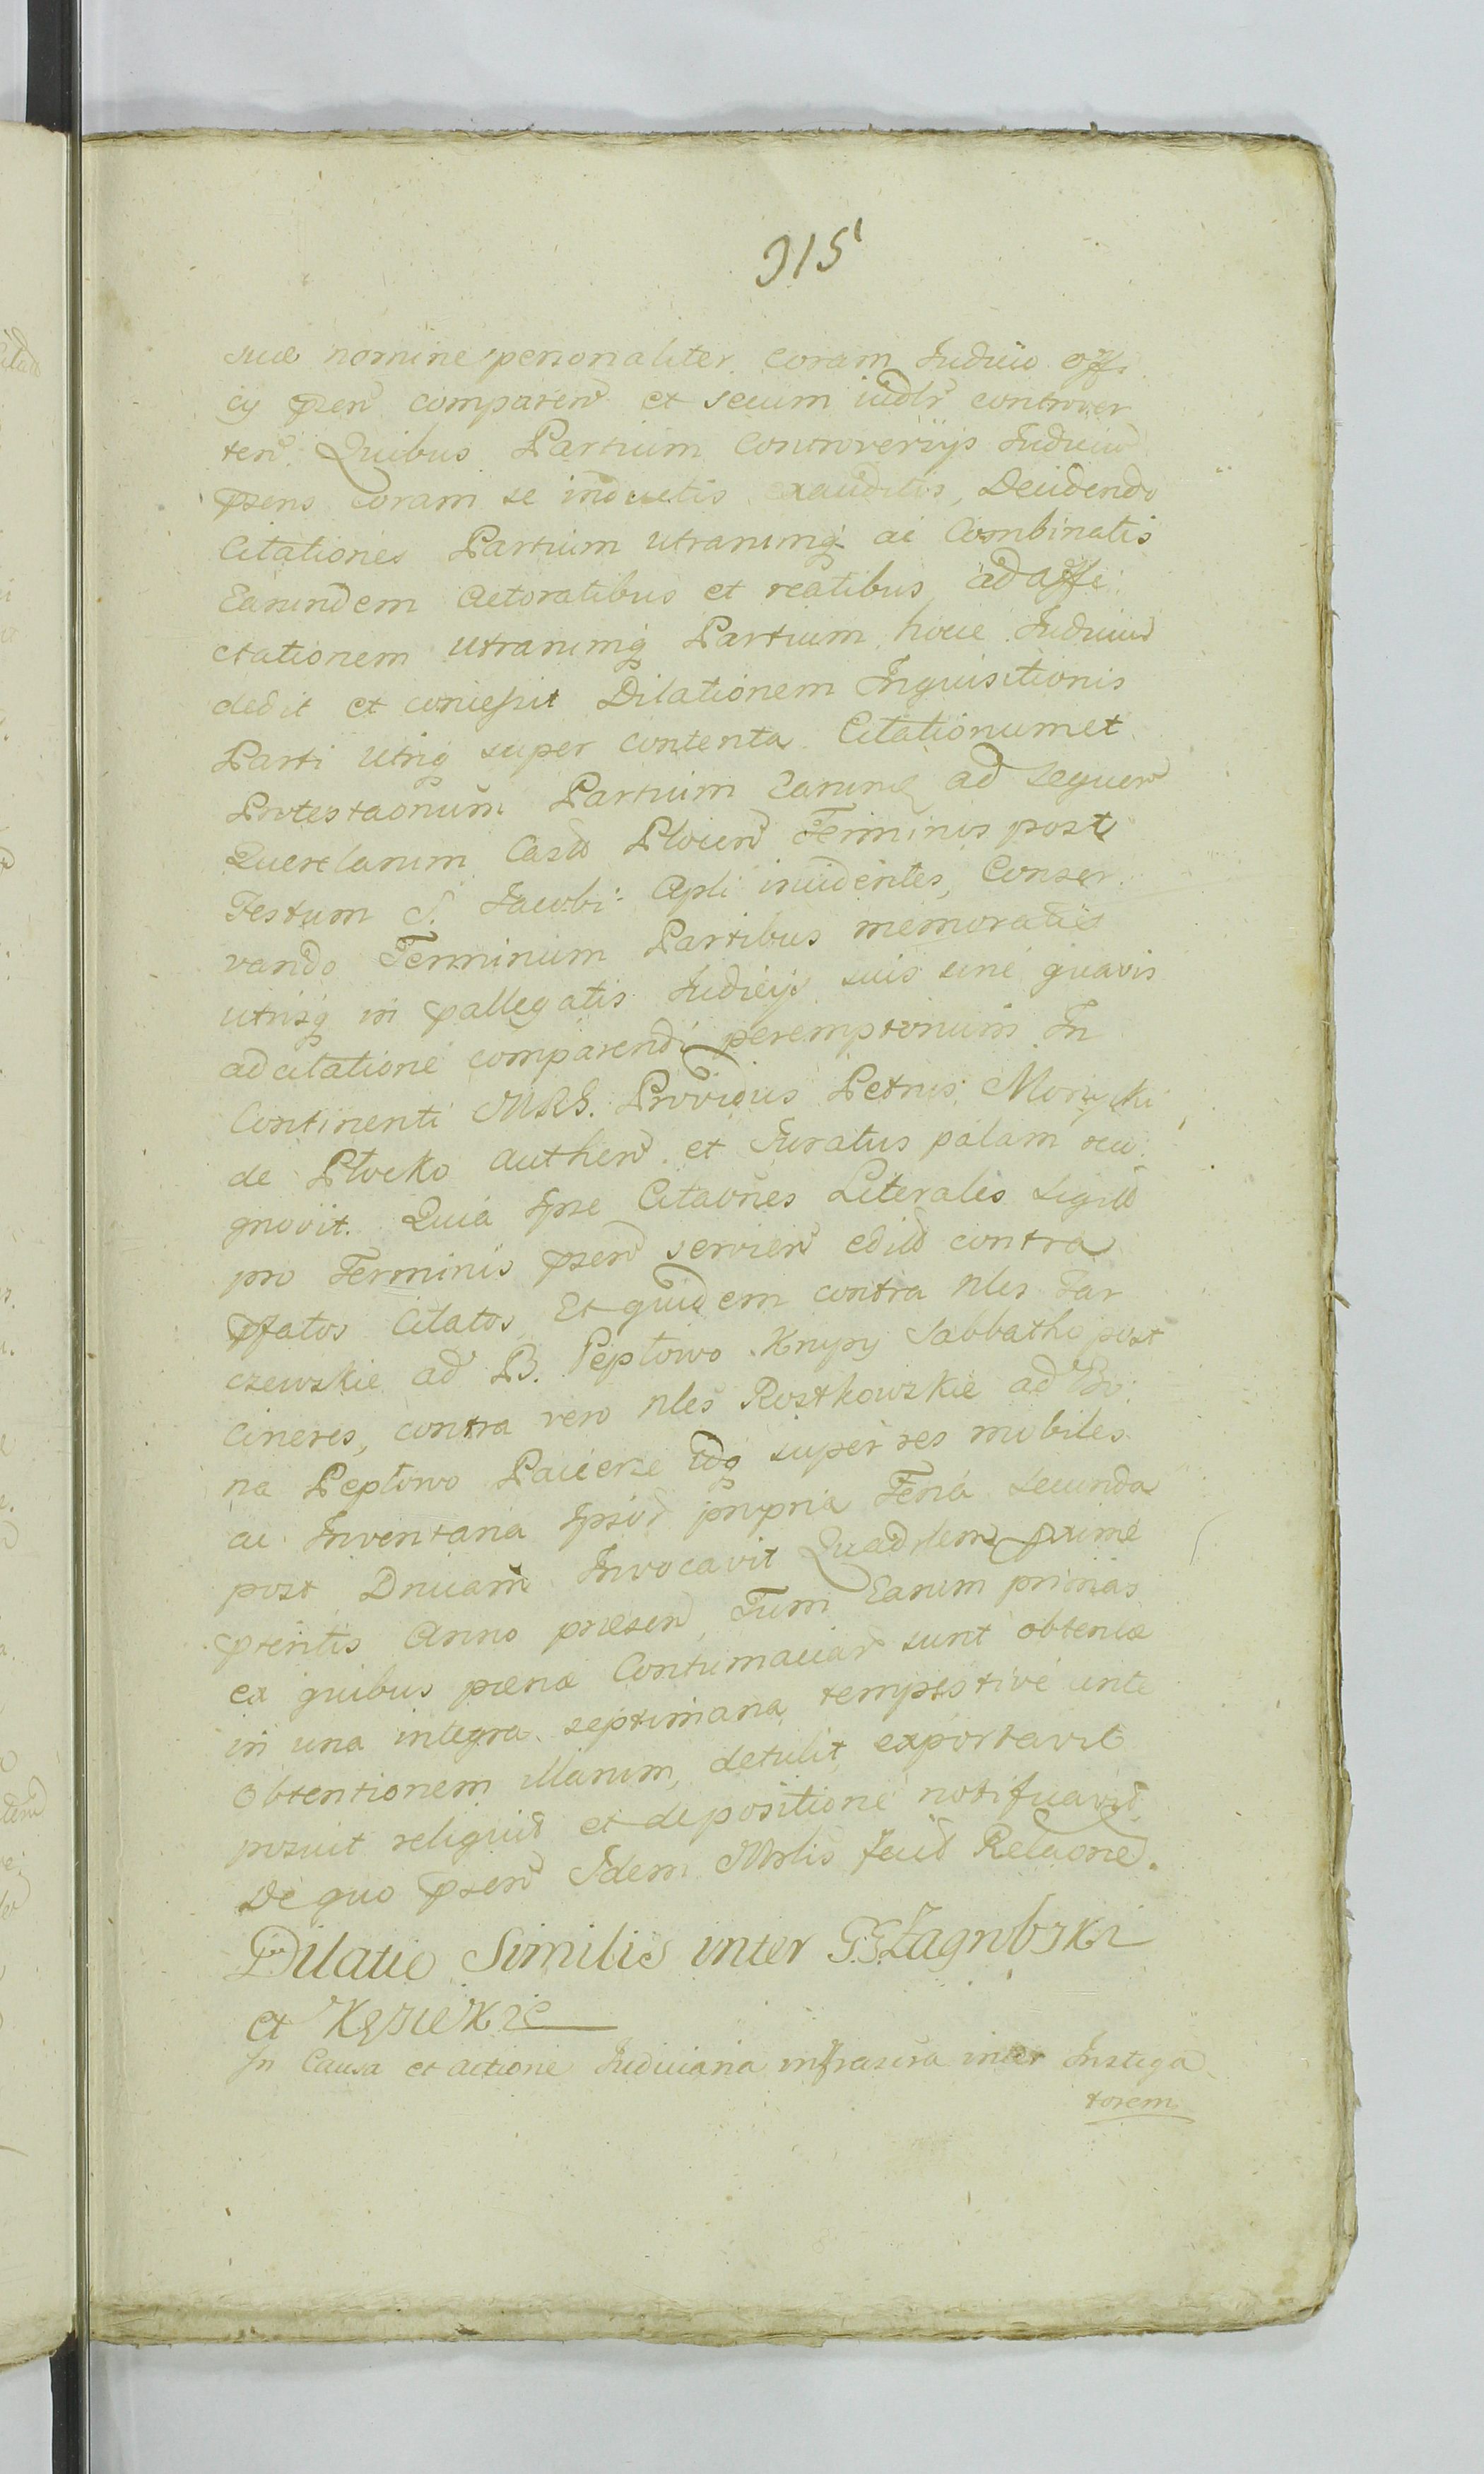 315
suae nomine personaliter coram Judicio Offi
cij psen comparen et secum iudlr controver
ten. Quibus Partium Controversijs Judicium
psens coram se inductis exauditis, Decidendo
Citationes Partium utrarumq ac Combinatis
Earundem Actoratibus et reatibus, ad affe
ctationem utrarumq Partium hocce Judicium
dedit et concessit Dilationem Inquisitionis
Parti utriq super contenta Citationum et
Protestaonum Partium Earumd ad sequen
Querelarum Castr Plocen Terminis post
Festum S. Jacobi Apli incidentes, Conser
vando Terminum Partibus memoratis
utrisq in pallegatis Judicijs suis sine quavis
adcitatione comparendi peremptorium. In
Continenti MRG. Providus Petrus Morzycki
de Płocko authen et Juratus palam reco
gnovit. Quia Ipse Citaones Literales Sigill
pro Terminis psen servien edit contra
pfatos Citatos, Et quidem contra Nles Tar
czewskie ad B. Peptowo Krupy Sabbatho post
Cineres, contra vero Nles Rostkowskie ad Bo
na Peptowo Pacierze idq super res mobiles
ac Inventaria Ipsor propria Feria secunda
post Dnicam Invocavit Quadrlem pxime
pteritis Anno praesen, Tum Earum primas
ex quibus paena Contumaciar sunt obtenta
in una integra septimana tempestive ante
obtentionem illarum, detulit, exportavit
posuit reliquit et de positione notificavit
De quo psen Idem Mrlis fecit Relaone.
Dilatio Similis inter G.G. Zagrobski
et Kęsickie
In Causa et actione Judiciaria infrascra inter Instiga
torem